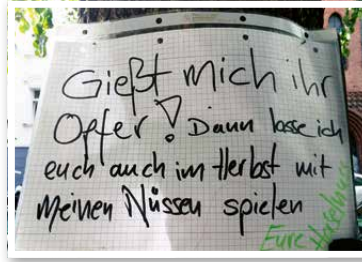 Gießt mich ihr
Opfer! Dann lasse ich
euch auch im Herbst mit
meinen Nüssen spielen
Eure Haselnuss